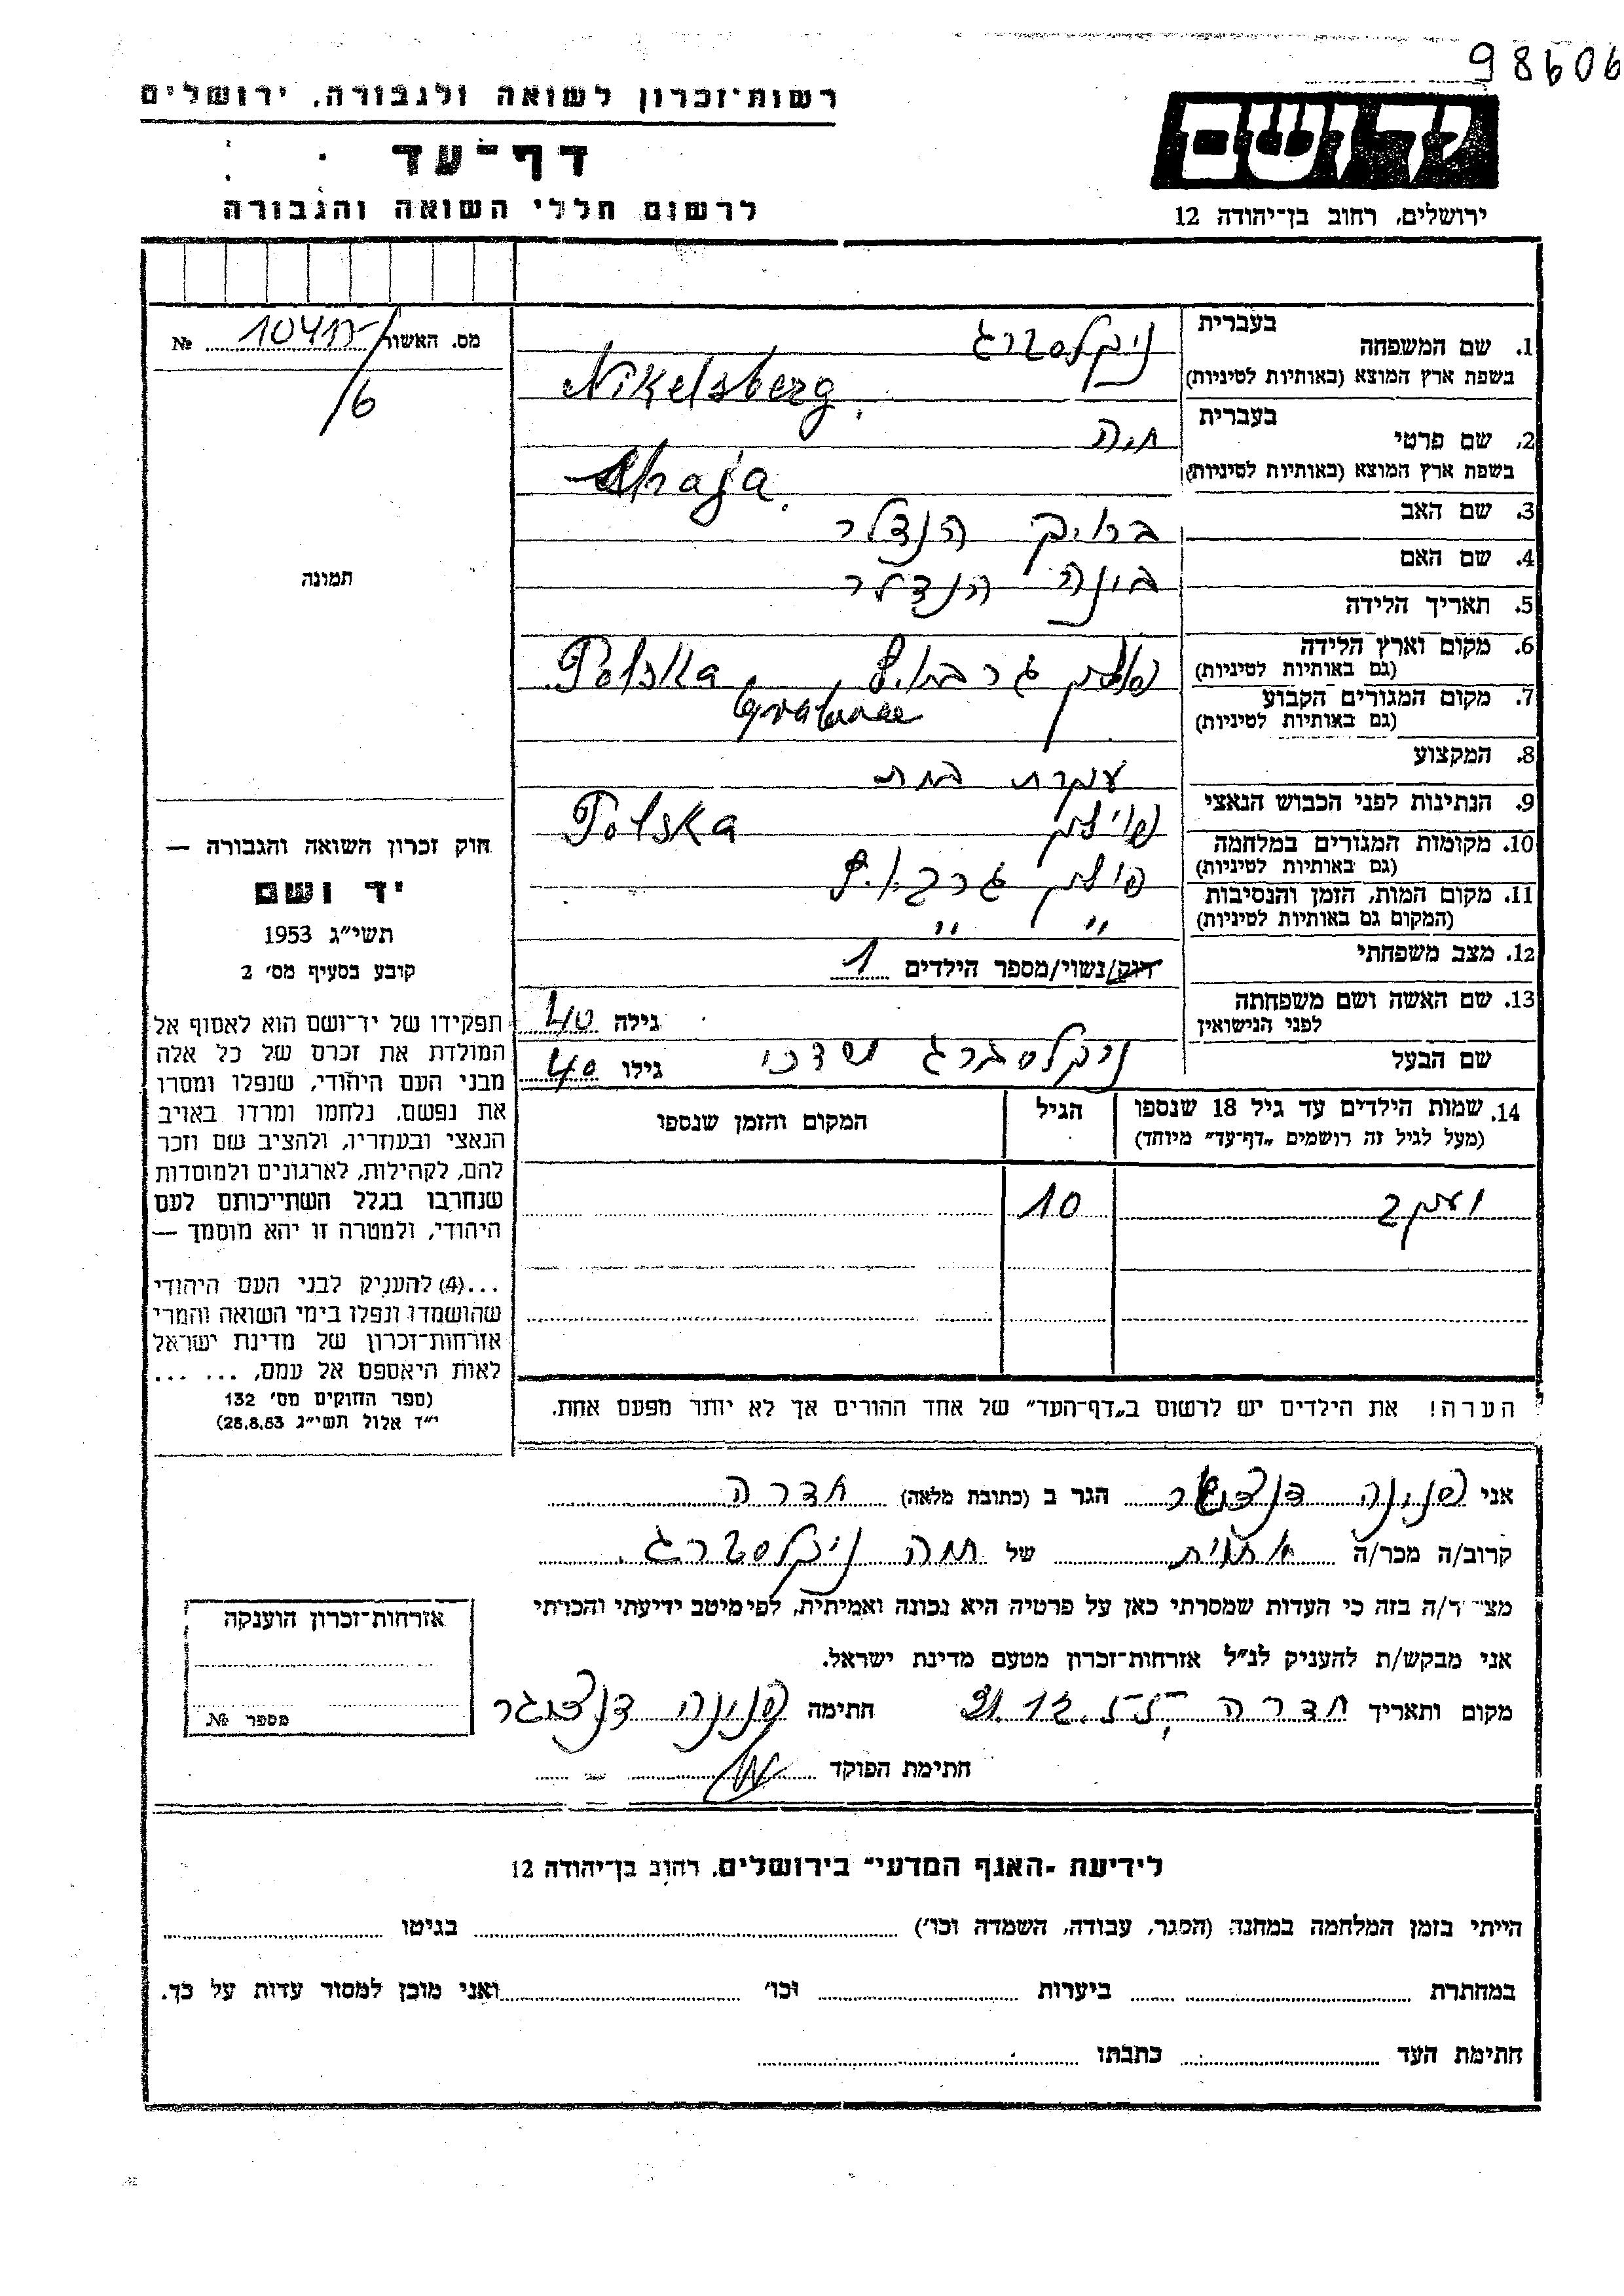 98606
רשות־זכרון לשואה ולגבורה, ירושלים
דף־עד
לרשום חללי השואה והגבורה
ירושלים, רחוב בן־יהודה 12
מס. האשור № 10417/6
תמונה
1. שם המשפחה בעברית ניקלסברג
בשפת ארץ המוצא (באותיות לטיניות) Nikelsberg.
2. שם פרטי בעברית חיה
בשפת ארץ המוצא (באותיות לטיניות) Khaja.
3. שם האב ברוך הנדלר
4. שם האם בינה הנדלר
5. תאריך הלידה
6. מקום וארץ הלידה Polska
(גם באותיות לטיניות)
7. מקום המגורים הקבוע
(גם באותיות לטיניות)
8. המקצוע עקרת בית
9. הנתינות לפני הכבוש הנאצי פולין Polska
10. מקומות המגורים במלחמה פולין
(גם באותיות לטיניות)
11. מקום המות, הזמן והנסיבות " "
(המקום גם באותיות לטיניות)
12. מצב משפחתי רווק/נשוי/מספר הילדים 1
13. שם האשה ושם משפחתה גילה 40
לפני הנישואין
שם הבעל ניקלסברג מרדכי גילו 40
14. שמות הילדים עד גיל 18 שנספו הגיל המקום והזמן שנספו
(מעל לגיל זה רושמים „דף־עד" מיוחד)
יעקב 10
הערה! את הילדים יש לרשום ב„דף־העד" של אחד ההורים אך לא יותר מפעם אחת.
חוק זכרון השואה והגבורה —
יד ושם
תשי"ג 1953
קובע בסעיף מס' 2
תפקידו של יד־ושם הוא לאסוף אל
המולדת את זכרם של כל אלה
מבני העם היהודי, שנפלו ומסרו
את נפשם, נלחמו ומרדו באויב
הנאצי ובעוזריו, ולהציב שם וזכר
להם, לקהילות, לארגונים ולמוסדות
שנחרבו בגלל השתייכותם לעם
היהודי, ולמטרה זו יהא מוסמך —
...(4) להעניק לבני העם היהודי
שהושמדו ונפלו בימי השואה והמרי
אזרחות־זכרון של מדינת ישראל
לאות היאספם אל עמם, ... ...
(ספר החוקים מס' 132
י"ד אלול תשי"ג 28.8.53)
אני פנינה דנציגר הגר ב (כתובת מלאה) חדרה
קרוב/ה מכר/ה אחות של חיה ניקלסברג
מצהיר/ה בזה כי העדות שמסרתי כאן על פרטיה היא נכונה ואמיתית, לפי מיטב ידיעתי והכרתי
אני מבקש/ת להעניק לנ"ל אזרחות־זכרון מטעם מדינת ישראל.
מקום ותאריך חדרה 31.12.55 חתימה פנינה דנציגר
חתימת הפוקד
אזרחות־זכרון הוענקה
מספר №
לידיעת „האגף המדעי" בירושלים, רחוב בן־יהודה 12
הייתי בזמן המלחמה במחנה (הסגר, עבודה, השמדה וכו') בגיטו
במחתרת ביערות וכו' ואני מוכן למסור עדות על כך.
חתימת העד כתבתו